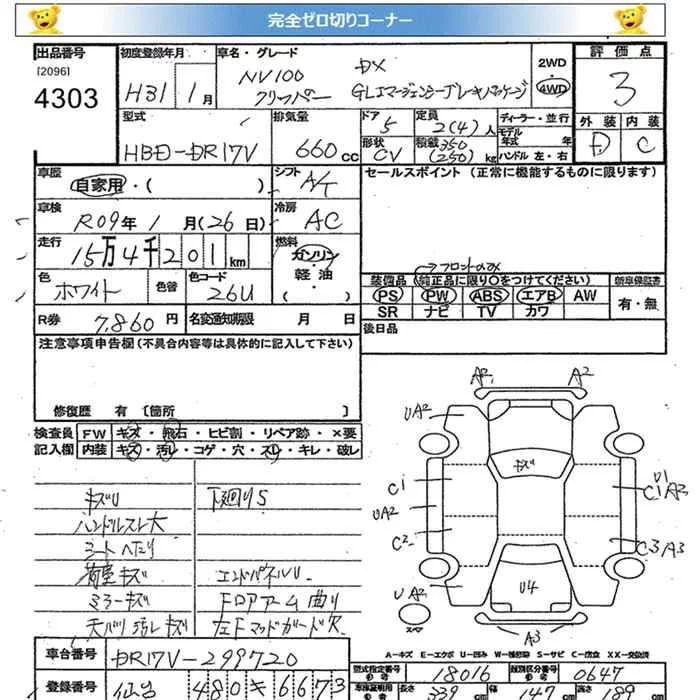 完全ゼロ切りコーナー
出品番号
[2096]
4303
初度登録年月
H31 1月
車名・グレード
NV100
クリッパー
DX
GLエマージェンシーブレーキパッケージ
2WD
4WD
評価点
3
外装 内装
D C
型式
HBD-DR17V
排気量
660cc
ドア
5
形状
CV
定員
2(4)人
積載 350
(250)kg
ディーラー・並行
モデル
年式 年
ハンドル 左・右
車歴
自家用・( )
シフト
A/T
車検
R09年 1月(26日)
冷房
AC
走行
15万4千201km
燃料
ガソリン
軽油
( )
色
ホワイト
色替
色コード
26U
R券 7,860円
名変通知期限 月 日
セールスポイント (正常に機能するものに限ります)
→フロントのみ
装備品(純正品に限り〇をつけてください)
PS PW ABS エアB AW
SR ナビ TV カワ
新車保証書
有・無
後日品
注意事項申告欄(不具合内容等は具体的に記入して下さい)
修復歴 有 [箇所 ]
検査員
記入欄
FW キズ・飛石・ヒビ割・リペア跡・×要
内装 キズ・汚レ・コゲ・穴・スレ・キレ・破レ
キズU
ハンドルスレ大
シートヘたり
荷室キズ
ミラーキズ
天バリ汚レキズ
下廻りS
エンドパネルU
Fロアアーム曲り
左Fマッドガード欠
A2 A2
UA2
キズ
C1
UA2
C2
UA2
U1
C1A3
C3/A3
U4
スペア
A3
A-キズ E-エクボ U-凹み W-補修跡 S-サビ C-腐食 XX-交換済
車台番号
DR17V-299720
型式指定番号
参考
18016
類別区分番号
参考
0647
登録番号
仙台 480 き 6673
車庫証明用
参考
長さ
339cm
幅
147cm
高さ
189cm